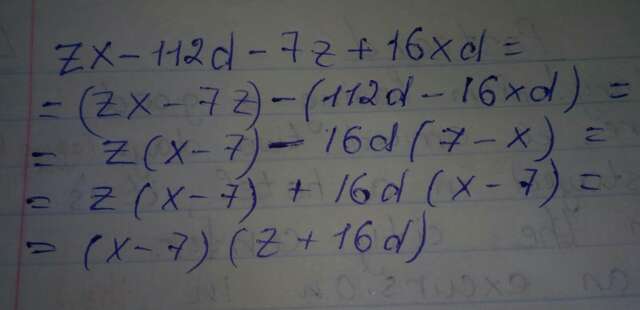 zx - 112d - 7z + 16xd =
= (zx - 7z) - (112d - 16xd) =
= z(x - 7) - 16d(7 - x) =
= z(x - 7) + 16d(x - 7) =
= (x - 7)(z + 16d)